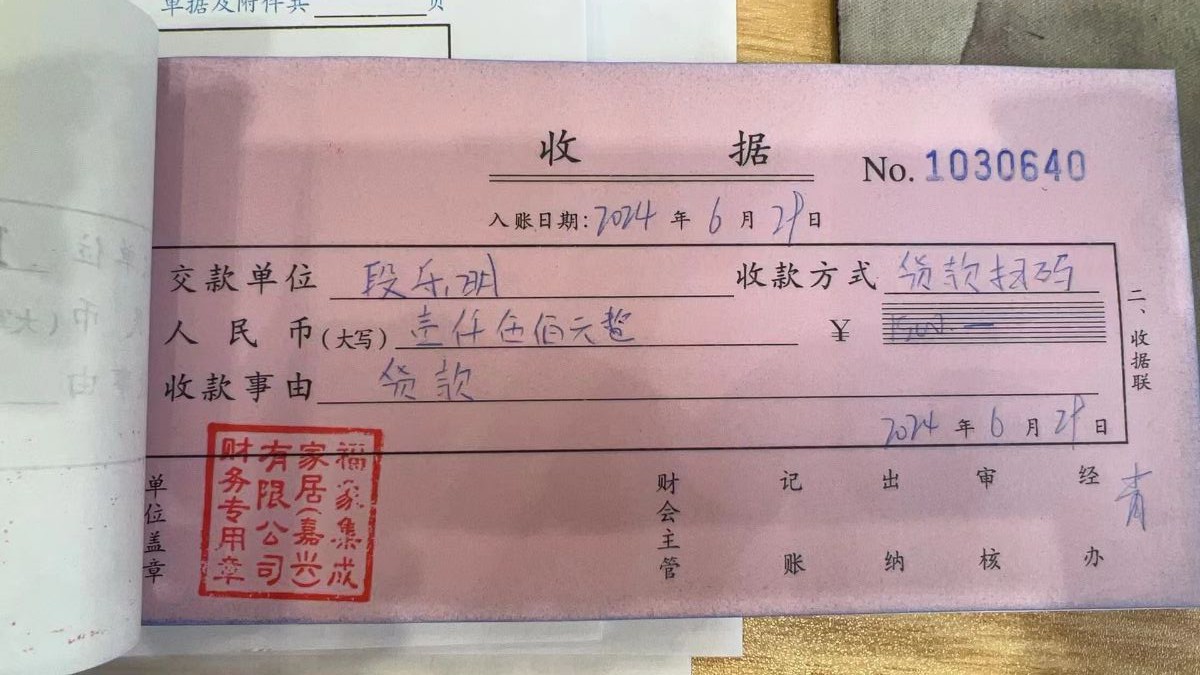 单据及附件共 页
收 据
No. 1030640
入账日期: 2024 年 6 月 29 日
交款单位 段乐明 收款方式 货款扫码
人民币(大写) 壹仟伍佰元整 ¥ 1500.—
收款事由 货款
2024 年 6 月 29 日
二、收据联
单位盖章 财会主管 记账 出纳 审核 经办 青
福家集成
家居(嘉兴)
有限公司
财务专用章